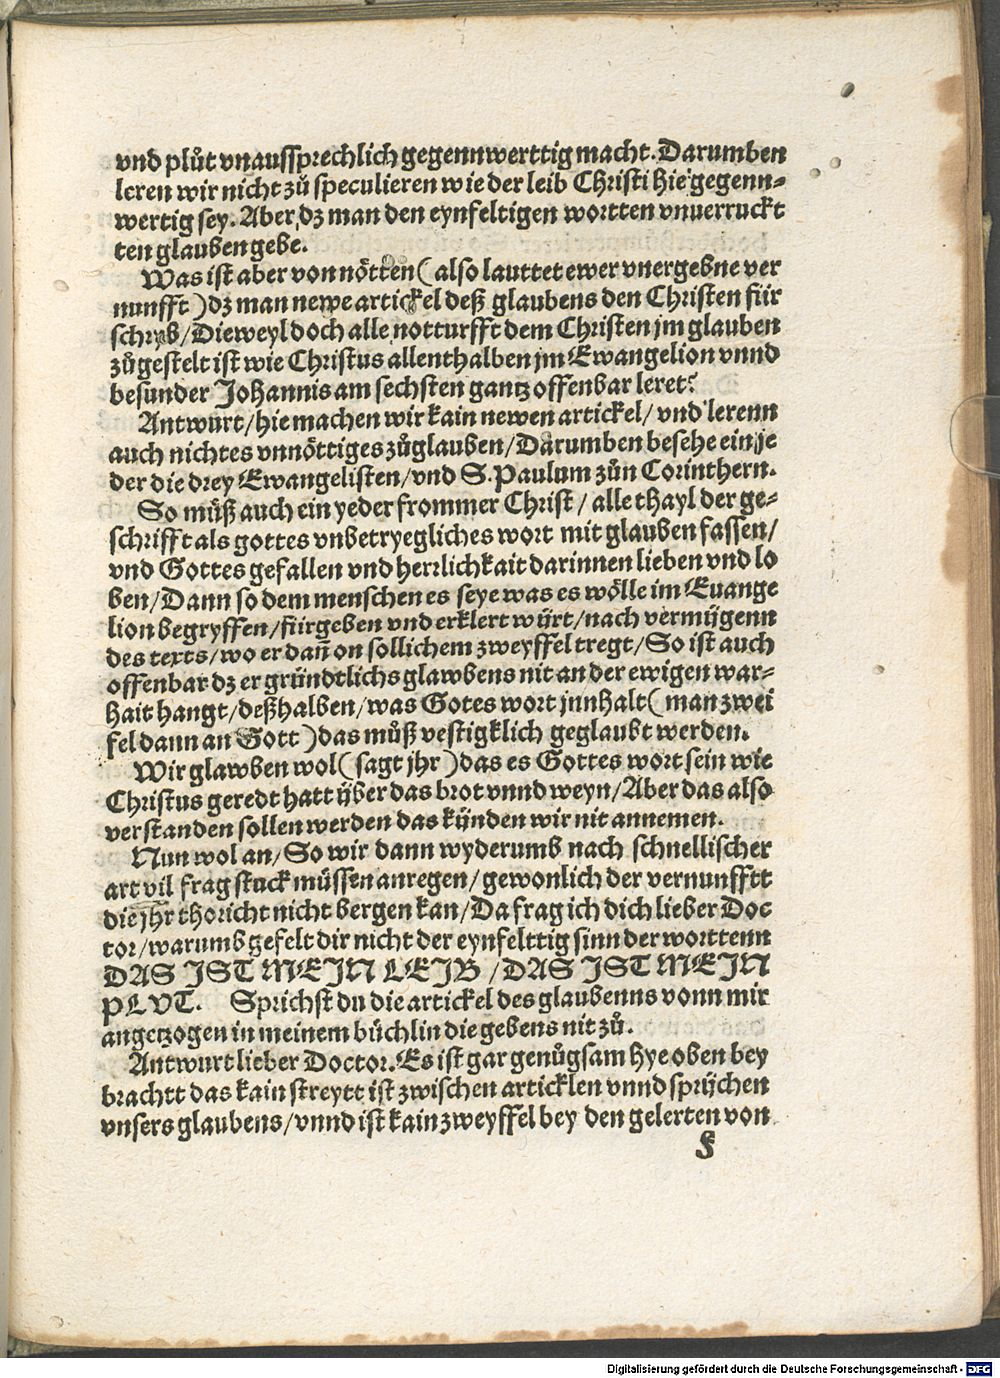 vnd plůt vnaussprechlich gegennwerttig macht. Darumben
leren wir nicht zů speculieren wie der leib Christi hie gegenn-
wertig sey. Aber dz man den eynfeltigen wortten vnuerruckt
ten glauben gebe.
Was ist aber von nötten ( also lauttet ewer vnergebne ver
nunfft ) dz man newe artickel deß glaubens den Christen für
schryb / Dieweyl doch alle notturfft dem Christen jm glauben
zůgestelt ist wie Christus allenthalben jm Ewangelion vnnd
besunder Johannis am sechsten gantz offenbar leret?
Antwurt / hie machen wir kain newen artickel / vnd lerenn
auch nichtes vnnöttiges zůglauben / Darumben besehe ein je
der die drey Ewangelisten / vnd S. Paulum zůn Corinthern.
So můß auch ein yeder frommer Christ / alle thayl der ge-
schrifft als gottes vnbetryegliches wort mit glauben fassen /
vnd Gottes gefallen vnd herrlichkait darinnen lieben vnd lo
ben / Dann so dem menschen es seye was es wölle im Euange
lion begryffen / fürgeben vnd erklert würt / nach vermügenn
des texts / wo er dañ on sollichem zweyffel tregt / So ist auch
offenbar dz er gründtlichs glawbens nit an der ewigen war-
hait hangt / deßhalben / was Gotes wort jnnhalt ( man zwei
fel dann an Gott ) das můß vestigklich geglaubt werden.
Wir glawben wol ( sagt jhr ) das es Gottes wort sein wie
Christus geredt hatt über das brot vnnd weyn / Aber das also
verstanden sollen werden das künden wir nit annemen.
Nun wol an / So wir dann wyderumb nach schnellischer
art vil fragstuck müssen anregen / gewonlich der vernunfftt
die jhr thoricht nicht bergen kan / Da frag ich dich lieber Doc
tor / warumb gefelt dir nicht der eynfelttig sinn der worttenn
DAS IST MEIN LEIB / DAS IST MEIN
PLVT. Sprichst du die artickel des glaubenns vonn mir
angetzogen in meinem büchlin die gebens nit zů.
Antwurt lieber Doctor. Es ist gar genůgsam hye oben bey
brachtt das kain streytt ist zwischen articklen vnnd sprüchen
vnsers glaubens / vnnd ist kain zweyffel bey den gelerten von
f
Digitalisierung gefördert durch die Deutsche Forschungsgemeinschaft - DFG